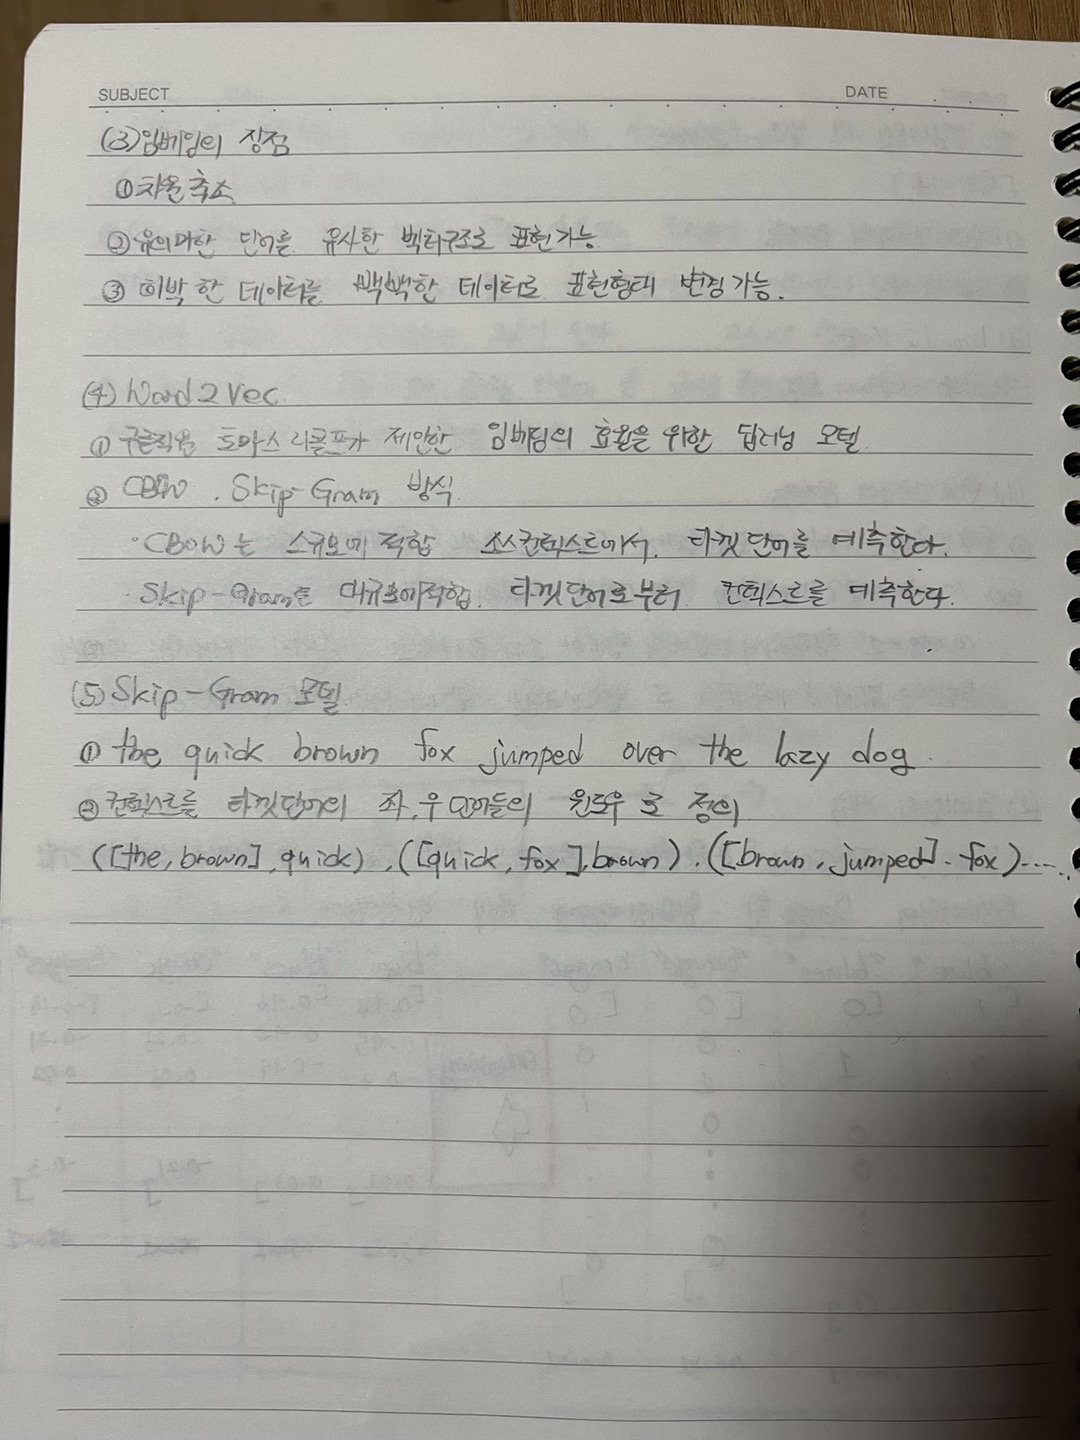 SUBJECT
DATE
(3) 임베딩의 장점
① 차원축소
② 유의미한 단어를 유사한 벡터구조로 표현가능
③ 희박한 데이터를 빽빽한 데이터로 표현형태 변경가능.
(4) Word2Vec
① 구글직원 토마스 미콜로프가 제안한 임베딩의 효율을 위한 딥러닝 모델
② CBOW, Skip-Gram 방식
· CBOW는 소규모에 적합 소스컨텍스트에서, 타겟단어를 예측한다.
· Skip-Gram은 대규모에적합. 타겟단어로부터 컨텍스트를 예측한다.
(5) Skip-Gram 모델
① the quick brown fox jumped over the lazy dog.
② 컨텍스트를 타겟단어의 좌,우 단어들의 윈도우로 정의
([the, brown], quick), ([quick, fox], brown), ([brown, jumped], fox)....